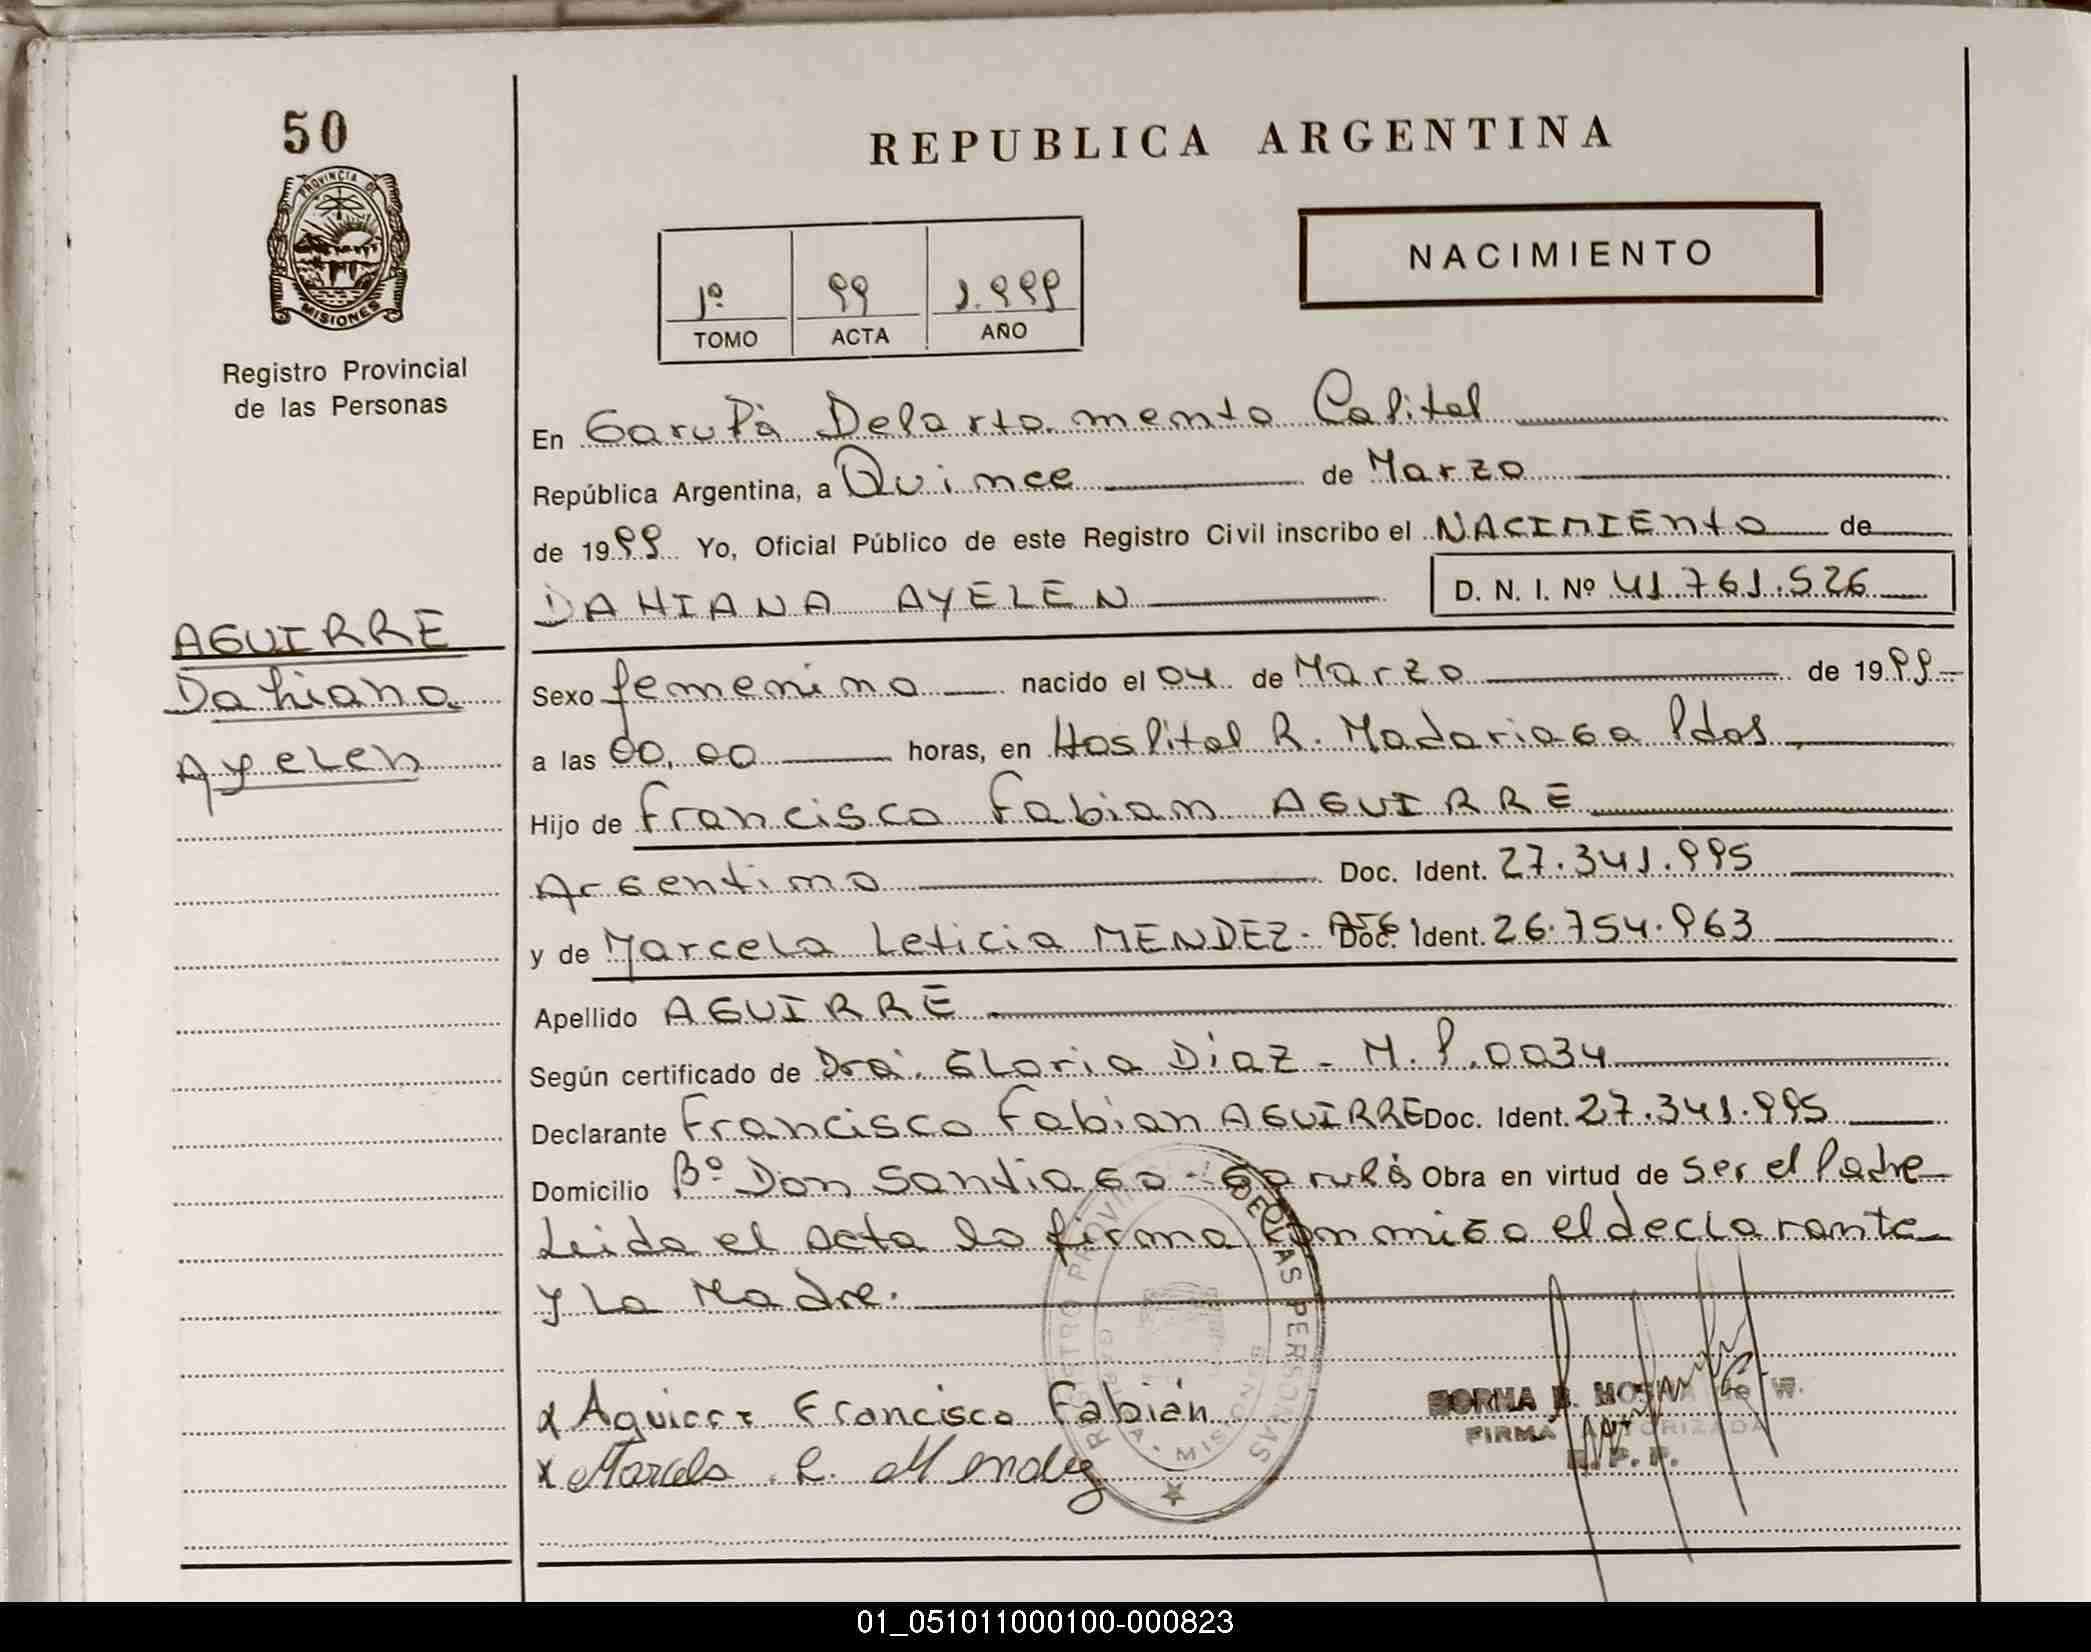 50
PROVINCIA DE
MISIONES
Registro Provincial
de las Personas
AGUIRRE
Dahiana
Ayelen
REPUBLICA ARGENTINA
NACIMIENTO
1º 99 1.999
TOMO ACTA AÑO
En Garupá Departamento Capital
República Argentina, a Quince de Marzo
de 1999 Yo, Oficial Público de este Registro Civil inscribo el NACIMIENto de
DAHIANA AYELEN D. N. I. Nº 41.761.526
Sexo femenino nacido el 04 de Marzo de 1999
a las 00,00 horas, en Hospital R. Madariaga Pdas
Hijo de Francisco Fabian AGUIRRE
Argentino Doc. Ident. 27.341.995
y de Marcela Leticia MENDEZ - Arg Doc. Ident. 26.754.963
Apellido AGUIRRE
Según certificado de Dra. Gloria Díaz - M.P. 0034
Declarante Francisco Fabian AGUIRRE Doc. Ident. 27.341.995
Domicilio Bº Don Santiago - Garupá Obra en virtud de ser el Padre
Leida el acta la firma conmigo el declarante
y La Madre.
x Aguirre Francisco Fabián
x Marcela L. Mendez
REGISTRO PROVINCIAL DE LAS PERSONAS
GARUPA - MISIONES
FIRMA AUTORIZADA
R. P. P.
01_051011000100-000823